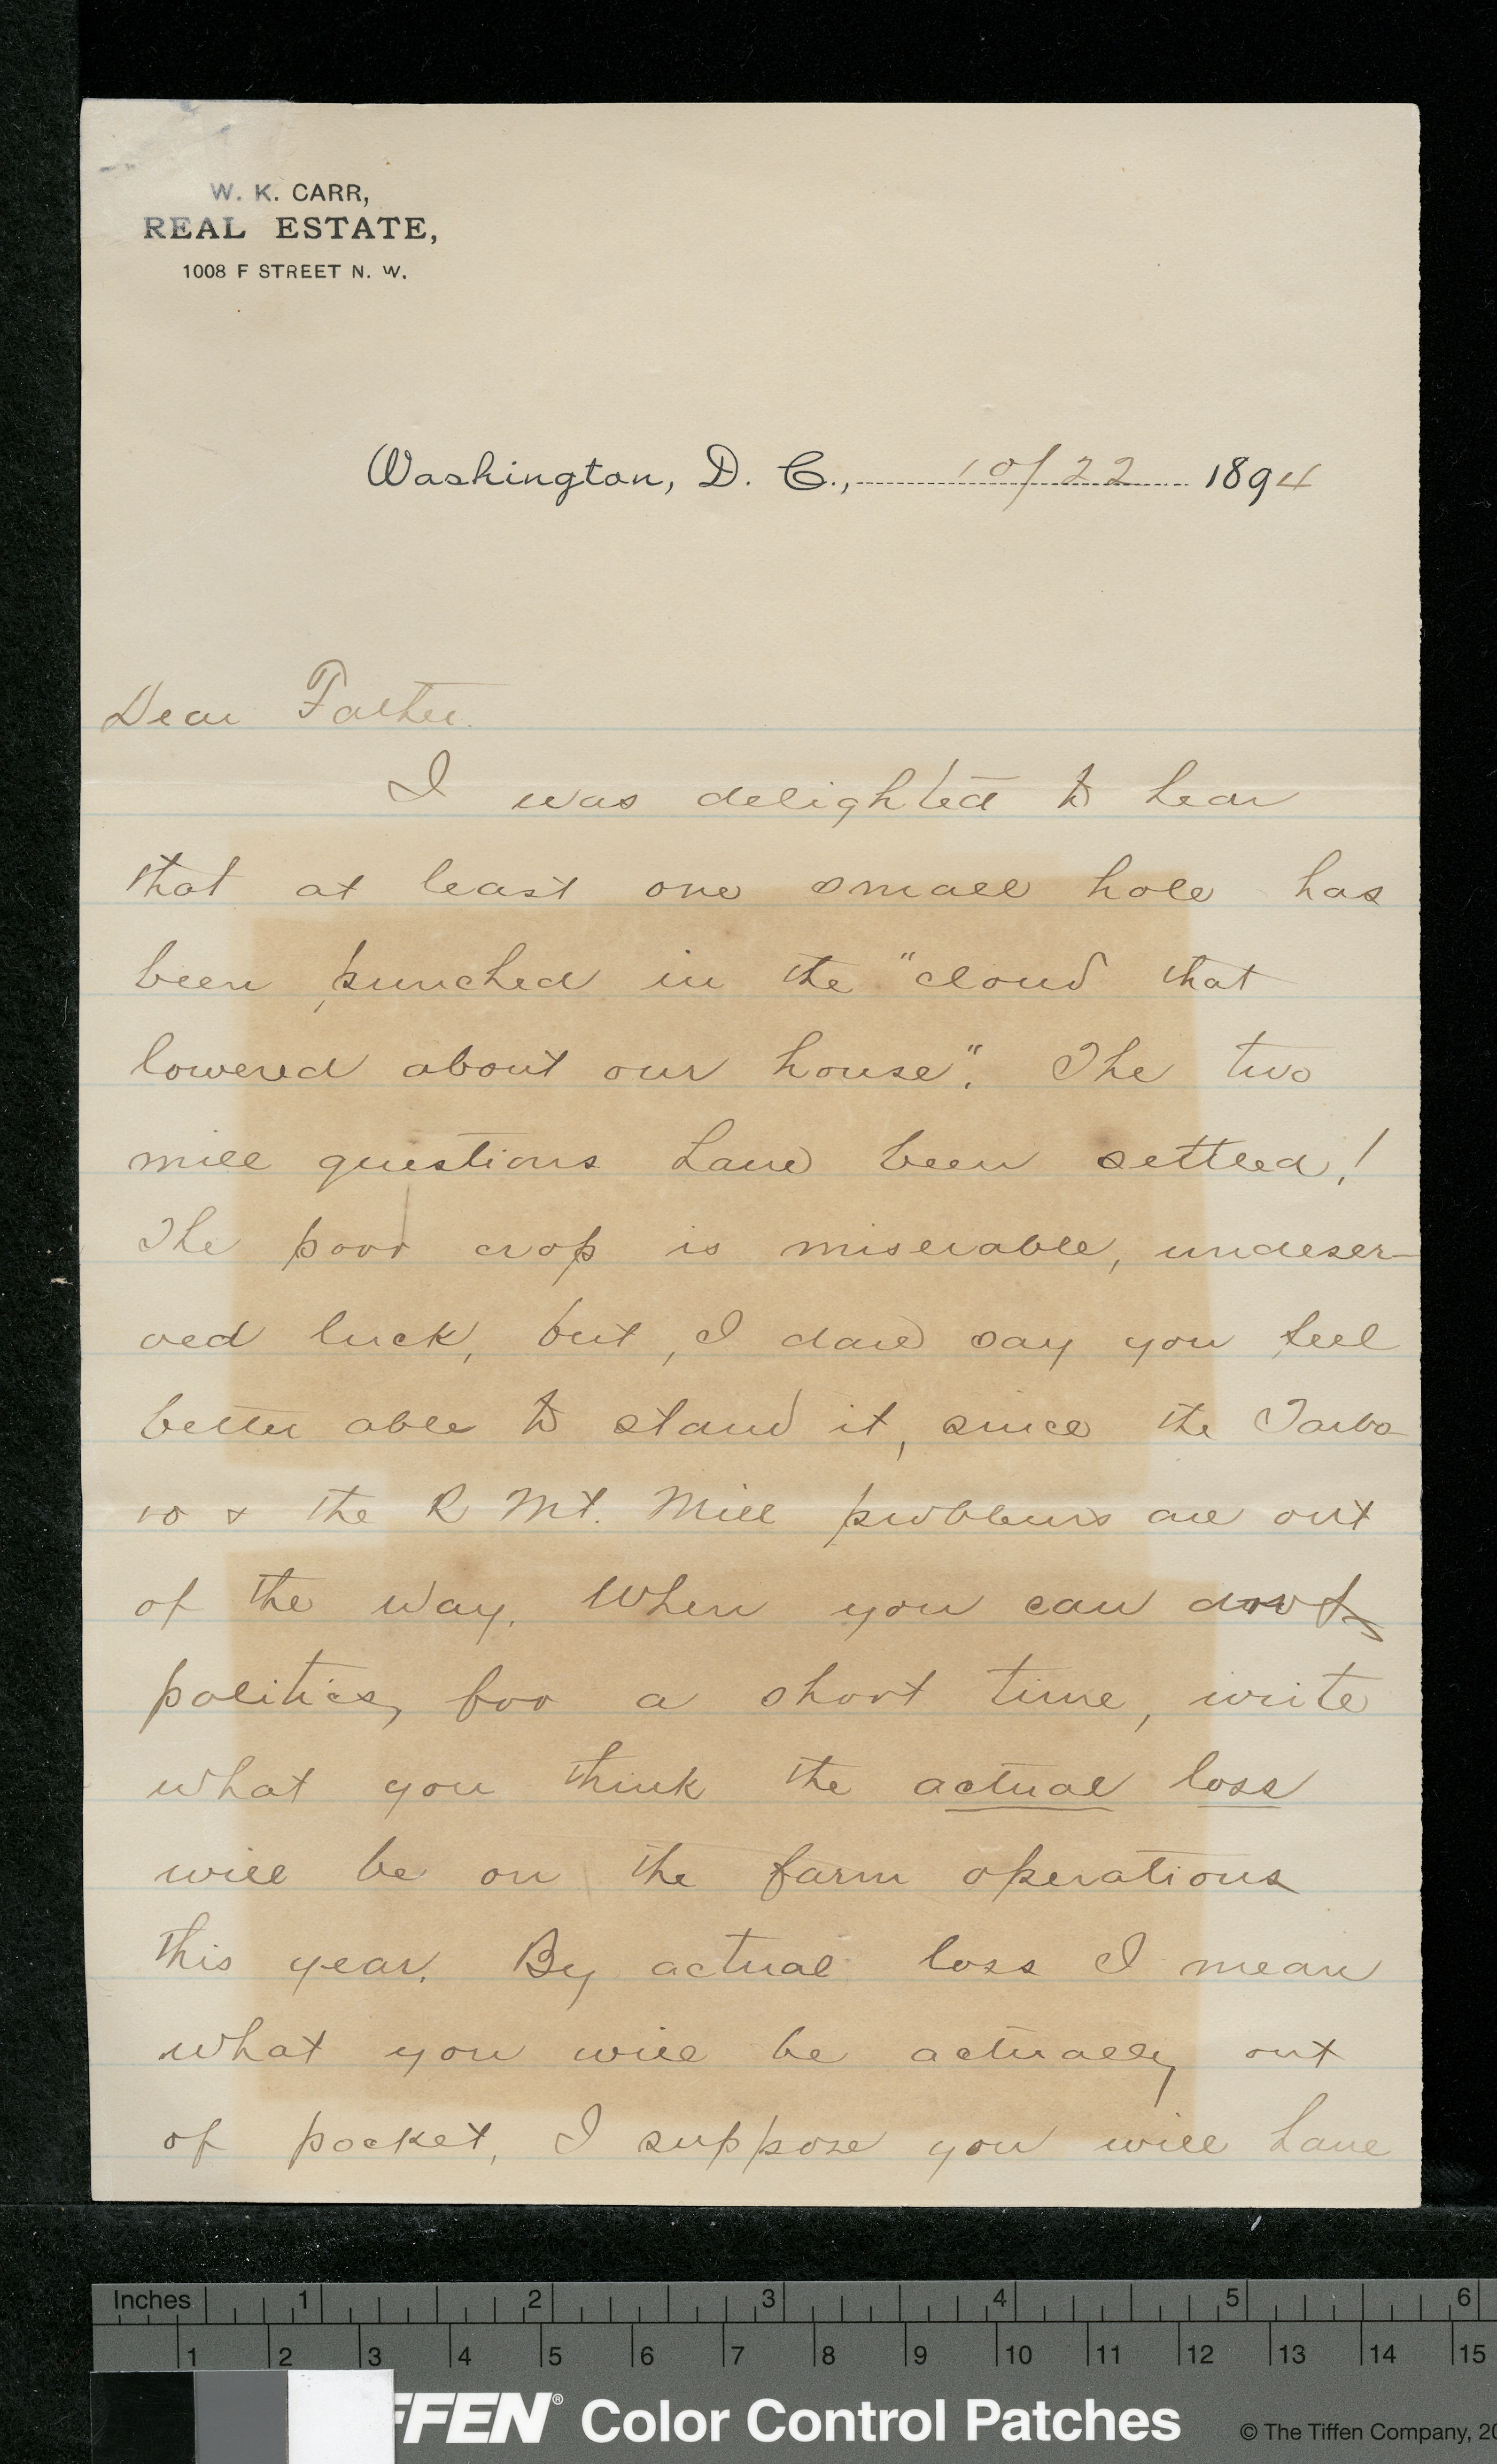 W. K. CARR,
REAL ESTATE,
1008 F STREET N. W.
Washington, D. C., 10/22 1894
Dear Father.
I was delighted to hear
that at least one small hole has
been punched in the "cloud that
lowered about our house". The two
mill questions have been settled!
The poor crop is miserable, undeser-
ved luck, but, I dare say you feel
better able to stand it, since the Tarbo-
ro & the R Mt. Mill problems are out
of the way. When you can
politics, for a short time, write
what you think the actual loss
will be on the farm operations
this year. By actual loss I mean
what you will be actually out
of pocket, I suppose you will have
Inches 1 2 3 4 5 6
1 2 3 4 5 6 7 8 9 10 11 12 13 14 15
FFEN® Color Control Patches © The Tiffen Company, 20